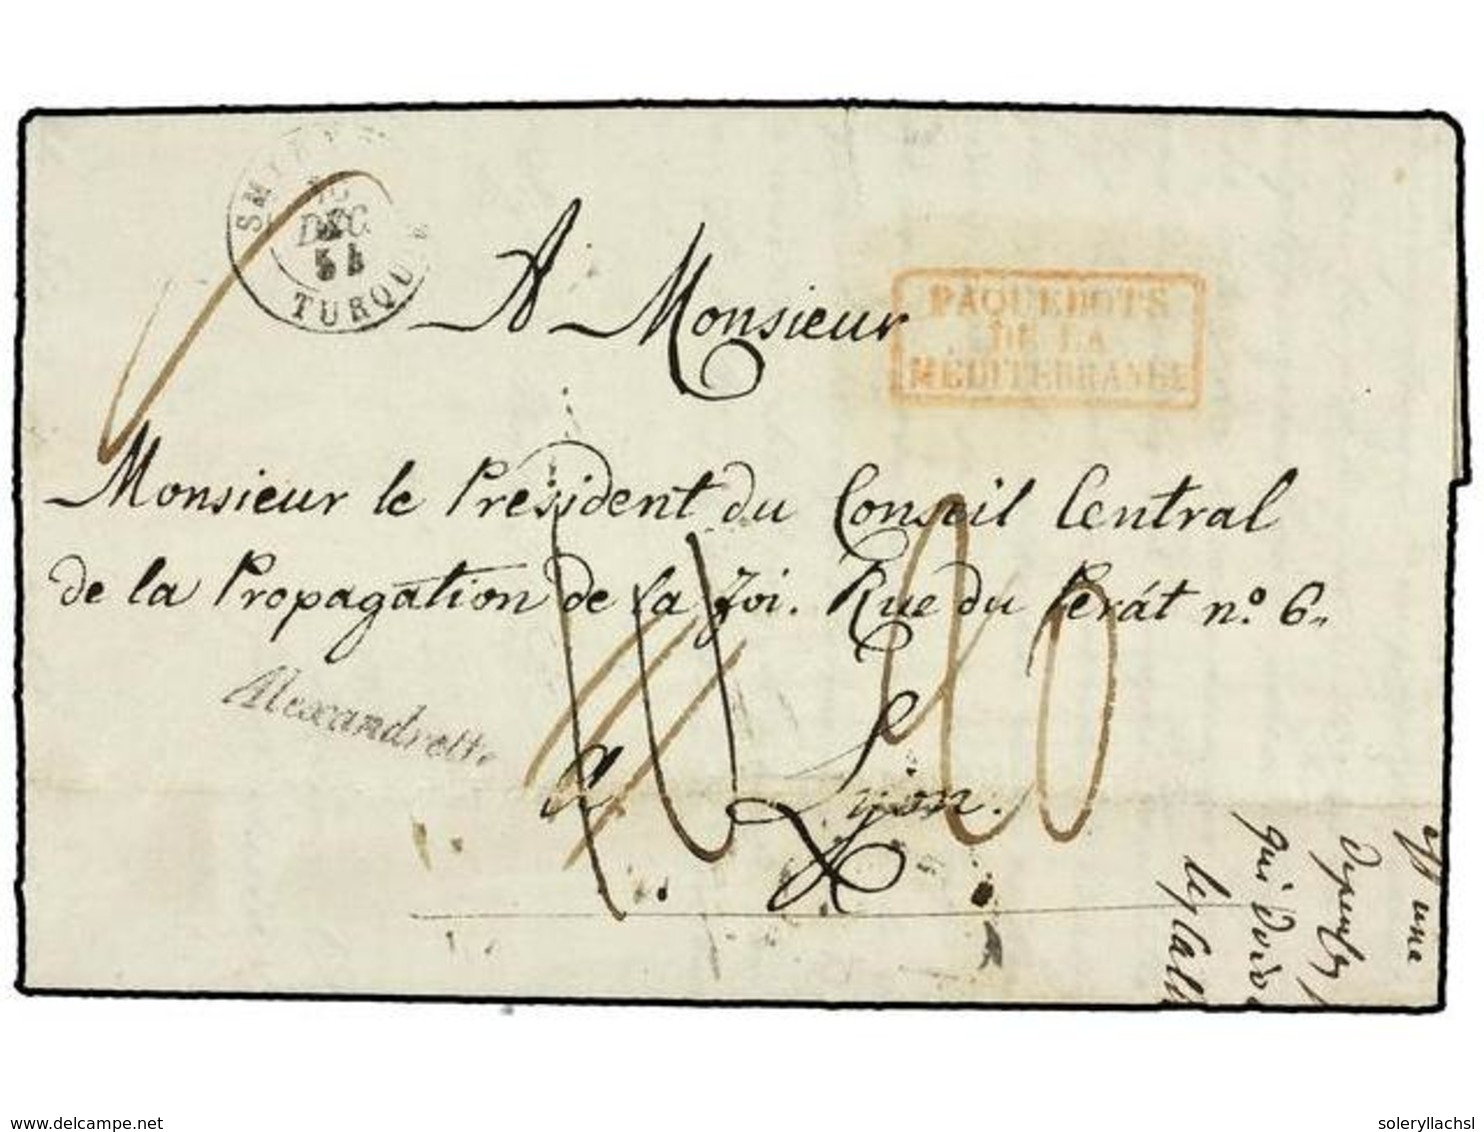 DEC.
TURQU
A Monsieur
PAQUEBOTS
DE LA
MEDITERRANEE
Monsieur le Président du Conseil Central
de la Propagation de la foi. Rue du Perát nº. 6.
Alexandrette
à Lyon.
une
qui
www.delcampe.net
soleryllachsl